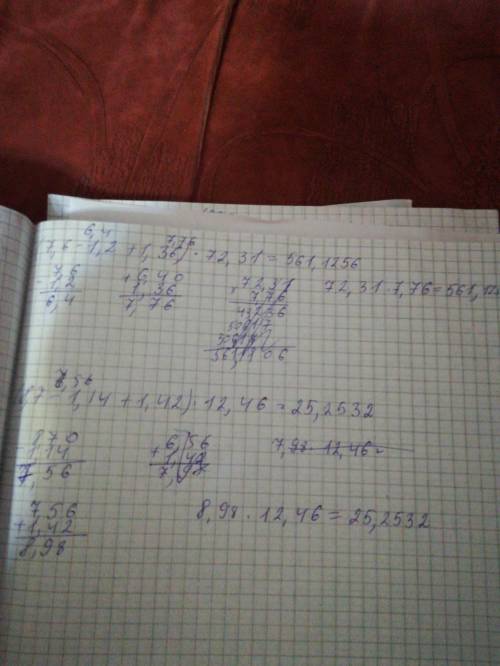 6,4 7,76
7,6 - 1,2 + 1,36) · 72,31 = 561,1256
- 7,6 + 6,40 × 72,31 72,31 · 7,76 = 561,12
1,2 1,36 7,76
6,4 7,76 43386
7,56
(87 - 1,14 + 1,42) · 12,46 = 25,2532
870 6,56 7,98 · 12,46 =
1 14 + 1,42
7 56 7,98
7,56 8,98 · 12,46 = 25,2532
+ 1,42
8,98